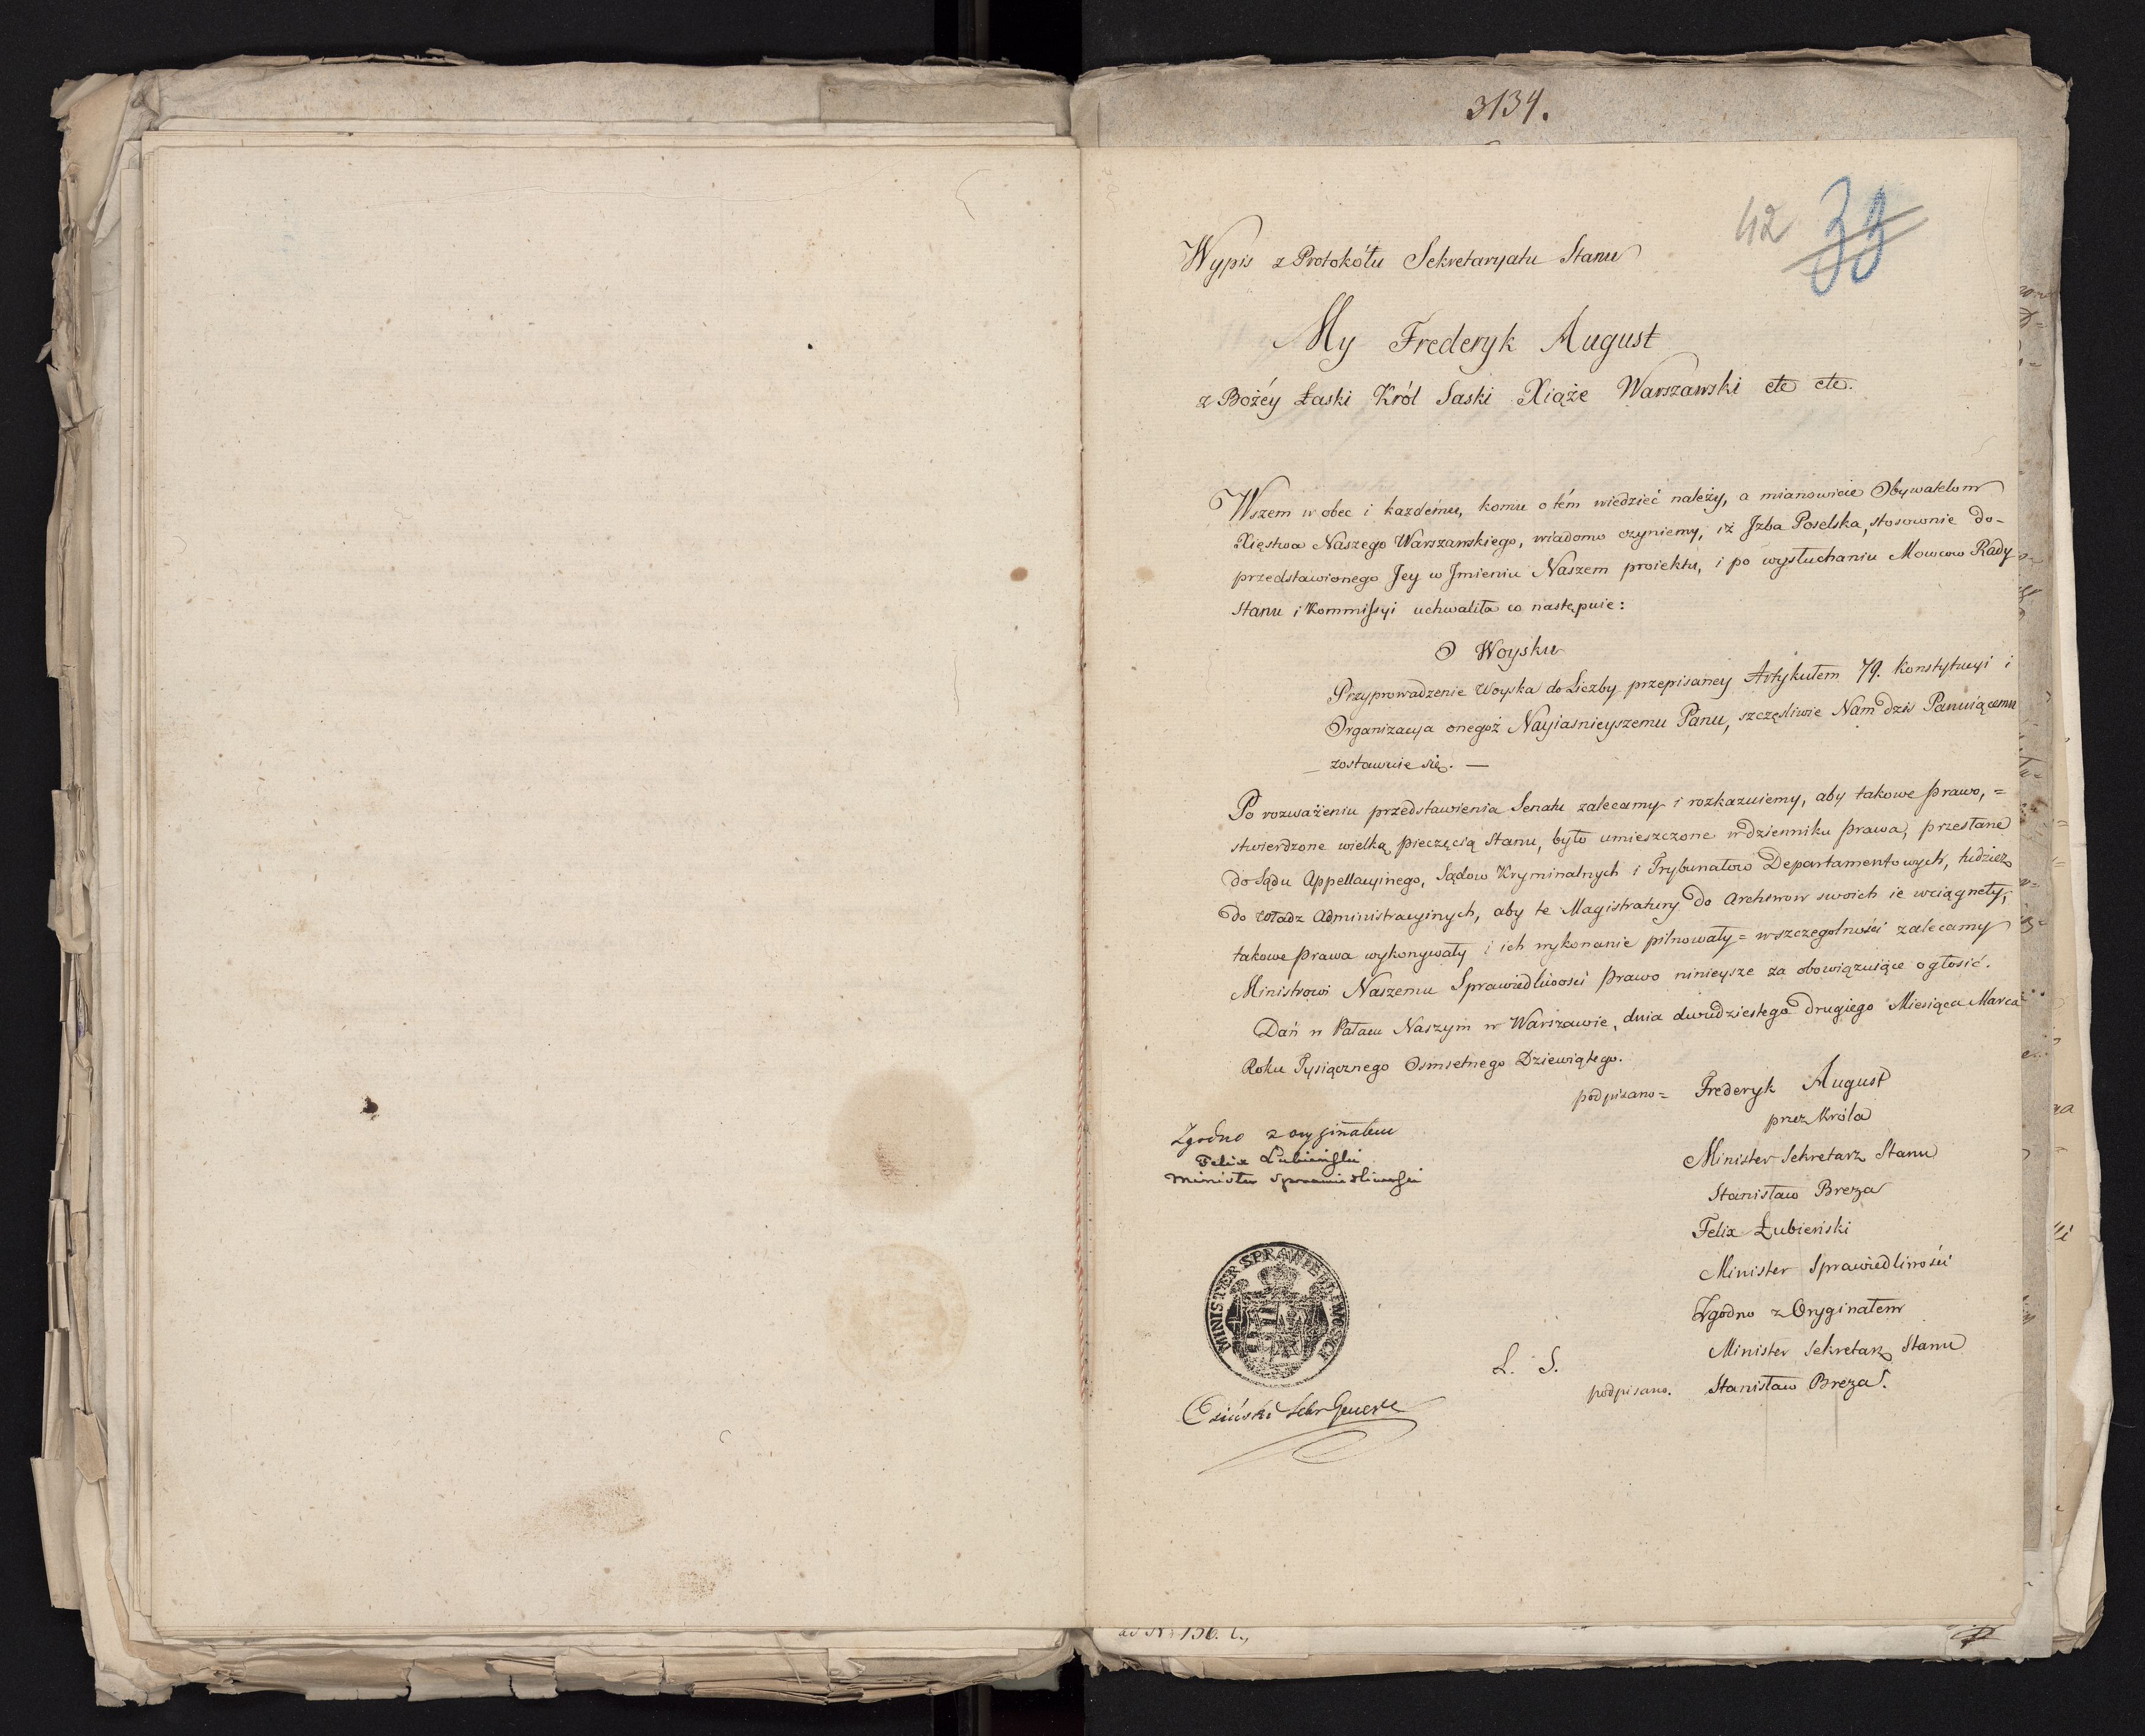 3134.
42 33
Wypis z Protokółu Sekretaryatu Stanu
My Frederyk August
z Bożéy Łaski Król Saski Xiąże Warszawski etc etc.
Wszem w obec i każdému, komu o tém wiedzieć należy, a mianowicie Obywatelom
Xięstwa Naszego Warszawskiego, wiadomo czyniemy, iż Jzba Poselska, stosownie do-
przedstawionego Jey w Jmieniu Naszem proiektu, i po wysłuchaniu Mowcow Rady
Stanu i Kommissyi uchwaliła co następuie:
O Woysku
Przyprowadzenie Woyska do Liczby przepisaney Artykułem 79. Konstytucyi i
Organizacya onegoż Nayiasnieyszemu Panu, szczęsliwie Nam dzis Panuiącemu
zostawuie się. —
Po rozważeniu przedstawienia Senatu zalecamy i rozkazuiemy, aby takowe prawo, =
stwierdzone wielką pieczęcią Stanu, było umieszczone w dzienniku prawa, przesłane
do Sądu Appellacyinego, Sądow Kryminalnych i Trybunałow Departamentowych, tudzież
do władz Administracyinych, aby te Magistratury do Archiwow swoich ie wciągnęły,
takowe prawa wykonywały i ich wykonanie pilnowały = w szczegolności zalecamy
Ministrowi Naszemu Sprawiedliwosci prawo ninieysze za obowiązuiące ogłosić.
Dań w Pałacu Naszym w Warszawie, dnia dwudziestego drugiego Miesiąca Marca
Roku Tysiącznego Osmsetnego Dziewiątego.
podpisano = Frederyk August
przez Króla
Minister Sekretarz Stanu
Stanisław Breza
Felix Łubieński
Minister Sprawiedliwości
Zgodno z Oryginałem
Minister Sekretarz Stanu
L. S. podpisano. Stanisław Breza.
Zgodno z oryginałem
Felix Łubieński
Minister Sprawiedliwosci
MINISTER SPRAWIEDLIWOSCI
Osiński Sekr